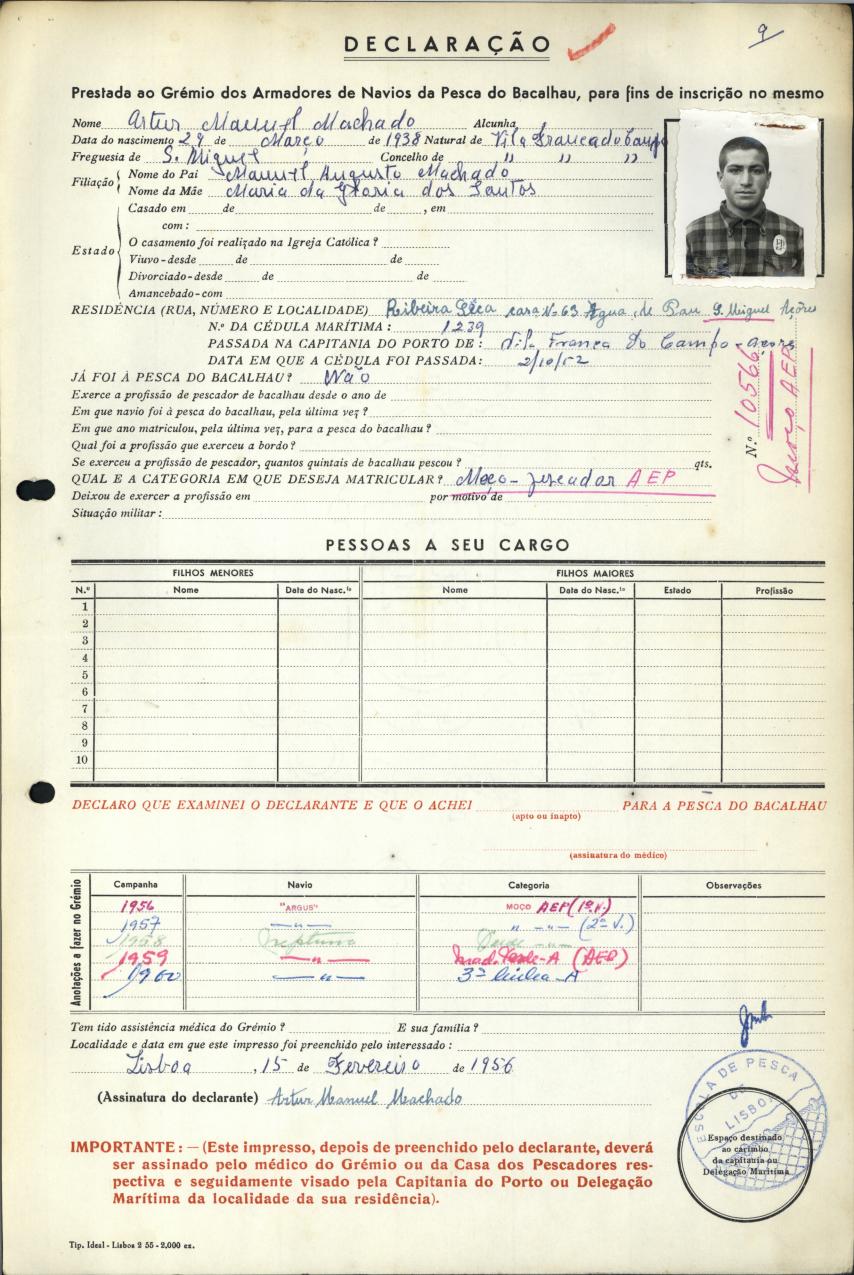 9
DECLARAÇÃO
Prestada ao Grémio dos Armadores de Navios da Pesca do Bacalhau, para fins de inscrição no mesmo
Nome Artur Manuel Machado Alcunha
Data do nascimento 29 de Março de 1938 Natural de Vila Franca do Campo
Freguesia de S. Miguel Concelho de " " "
Filiação
Nome do Pai Manuel Augusto Machado
Nome da Mãe Maria da Gloria dos Santos
Estado
Casado em de de , em
com:
O casamento foi realizado na Igreja Católica?
Viuvo-desde de de
Divorciado-desde de de
Amancebado-com
RESIDÊNCIA (RUA, NÚMERO E LOCALIDADE) Ribeira Sêca casa Nº 63 Agua de Pau S. Miguel Açôres
N.º DA CÉDULA MARÍTIMA: 1239
PASSADA NA CAPITANIA DO PORTO DE: Vila Franca do Campo - Açores
DATA EM QUE A CÉDULA FOI PASSADA: 2/10/52
JÁ FOI À PESCA DO BACALHAU? Não
Exerce a profissão de pescador de bacalhau desde o ano de
Em que navio foi à pesca do bacalhau, pela última vez?
Em que ano matriculou, pela última vez, para a pesca do bacalhau?
Qual foi a profissão que exerceu a bordo?
Se exerceu a profissão de pescador, quantos quintais de bacalhau pescou? qts.
QUAL E A CATEGORIA EM QUE DESEJA MATRICULAR? Moço - pescador AEP
Deixou de exercer a profissão em por motivo de
Situação militar:
N.º 10566
Moço AEP
PESSOAS A SEU CARGO
FILHOS MENORES FILHOS MAIORES
N.º Nome Data do Nasc.to Nome Data do Nasc.to Estado Profissão
1
2
3
4
5
6
7
8
9
10
DECLARO QUE EXAMINEI O DECLARANTE E QUE O ACHEI PARA A PESCA DO BACALHAU
(apto ou inapto)
(assinatura do médico)
Anotações a fazer no Grémio
Campanha Navio Categoria Observações
1956 "ARGUS" MOÇO AEP (1ª V.)
1957 — " — " — " — (2ª V.)
1958 Neptuno Verde — " —
1959 — " — Verde-A (AEP)
1960 — " — 3ª linha-A
Tem tido assistência médica do Grémio? E sua família?
Localidade e data em que este impresso foi preenchido pelo interessado:
Lisboa, 15 de Fevereiro de 1956
(Assinatura do declarante) Artur Manuel Machado
ESCOLA DE PESCA DE LISBOA
Espaço destinado
ao carimbo
da capitania ou
Delegação Marítima
IMPORTANTE: — (Este impresso, depois de preenchido pelo declarante, deverá
ser assinado pelo médico do Grémio ou da Casa dos Pescadores res-
pectiva e seguidamente visado pela Capitania do Porto ou Delegação
Marítima da localidade da sua residência).
Tip. Ideal - Lisboa 2 55 - 2.000 ex.